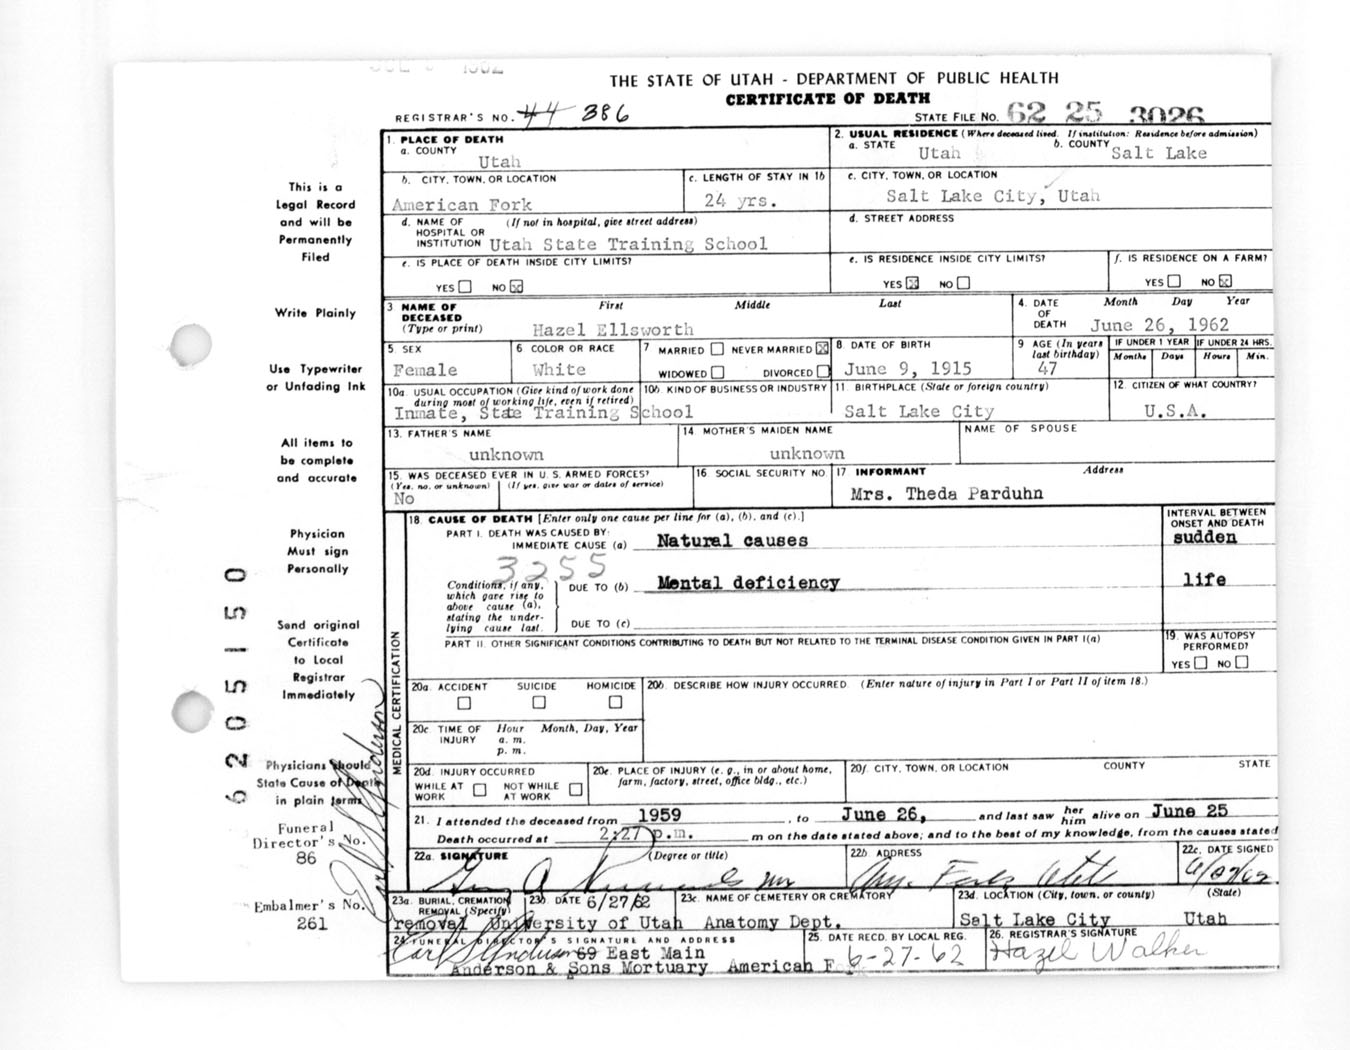 THE STATE OF UTAH - DEPARTMENT OF PUBLIC HEALTH
CERTIFICATE OF DEATH
REGISTRAR'S NO. 44 386
STATE FILE NO. 62 25 3026
1. PLACE OF DEATH
a. COUNTY
Utah
2. USUAL RESIDENCE (Where deceased lived. If institution: Residence before admission)
a. STATE Utah b. COUNTY Salt Lake
b. CITY, TOWN, OR LOCATION
American Fork
c. LENGTH OF STAY IN 1b
24 yrs.
c. CITY, TOWN, OR LOCATION
Salt Lake City, Utah
d. NAME OF HOSPITAL OR INSTITUTION (If not in hospital, give street address)
Utah State Training School
d. STREET ADDRESS
e. IS PLACE OF DEATH INSIDE CITY LIMITS?
YES NO
e. IS RESIDENCE INSIDE CITY LIMITS?
YES NO
f. IS RESIDENCE ON A FARM?
YES NO
3 NAME OF DECEASED (Type or print) First Middle Last
Hazel Ellsworth
4. DATE OF DEATH Month Day Year
June 26, 1962
5. SEX
Female
6 COLOR OR RACE
White
7 MARRIED NEVER MARRIED
WIDOWED DIVORCED
8 DATE OF BIRTH
June 9, 1915
9 AGE (In years last birthday)
47
IF UNDER 1 YEAR
Months Days
IF UNDER 24 HRS.
Hours Min.
10a. USUAL OCCUPATION (Give kind of work done during most of working life, even if retired)
Inmate, State Training School
10b. KIND OF BUSINESS OR INDUSTRY
11. BIRTHPLACE (State or foreign country)
Salt Lake City
12. CITIZEN OF WHAT COUNTRY?
U.S.A.
13. FATHER'S NAME
unknown
14. MOTHER'S MAIDEN NAME
unknown
NAME OF SPOUSE
15. WAS DECEASED EVER IN U.S. ARMED FORCES?
(Yes, no, or unknown) (If yes, give war or dates of service)
No
16. SOCIAL SECURITY NO.
17. INFORMANT Address
Mrs. Theda Parduhn
MEDICAL CERTIFICATION
18. CAUSE OF DEATH [Enter only one cause per line for (a), (b), and (c).]
INTERVAL BETWEEN ONSET AND DEATH
PART I. DEATH WAS CAUSED BY:
IMMEDIATE CAUSE (a) Natural causes sudden
3255
Conditions, if any, which gave rise to above cause (a), stating the underlying cause last.
DUE TO (b) Mental deficiency life
DUE TO (c)
PART II. OTHER SIGNIFICANT CONDITIONS CONTRIBUTING TO DEATH BUT NOT RELATED TO THE TERMINAL DISEASE CONDITION GIVEN IN PART I(a)
19. WAS AUTOPSY PERFORMED?
YES NO
20a. ACCIDENT SUICIDE HOMICIDE
20b. DESCRIBE HOW INJURY OCCURRED. (Enter nature of injury in Part I or Part II of item 18.)
20c. TIME OF INJURY Hour Month, Day, Year
a. m.
p. m.
20d. INJURY OCCURRED
WHILE AT WORK NOT WHILE AT WORK
20e. PLACE OF INJURY (e. g., in or about home, farm, factory, street, office bldg., etc.)
20f. CITY, TOWN, OR LOCATION COUNTY STATE
21. I attended the deceased from 1959, to June 26, and last saw her him alive on June 25
Death occurred at 2:27 p.m. m on the date stated above; and to the best of my knowledge, from the causes stated
22a. SIGNATURE (Degree or title)
22b ADDRESS
Am. Fork Utah
22c. DATE SIGNED
6/27/62
23a. BURIAL, CREMATION REMOVAL (Specify)
removal
23b. DATE 6/27/62
23c. NAME OF CEMETERY OR CREMATORY
University of Utah Anatomy Dept.
23d. LOCATION (City, town, or county) (State)
Salt Lake City Utah
24 FUNERAL DIRECTOR'S SIGNATURE AND ADDRESS
Earl S Anderson 69 East Main
Anderson & Sons Mortuary American Fork
25. DATE RECD. BY LOCAL REG.
6-27-62
26. REGISTRAR'S SIGNATURE
Hazel Walker
This is a
Legal Record
and will be
Permanently
Filed
Write Plainly
Use Typewriter
or Unfading Ink
All items to
be complete
and accurate
Physician
Must sign
Personally
Send original
Certificate
to Local
Registrar
Immediately
Physicians should
State Cause of Death
in plain terms
Funeral
Director's No.
86
Embalmer's No.
261
6205150